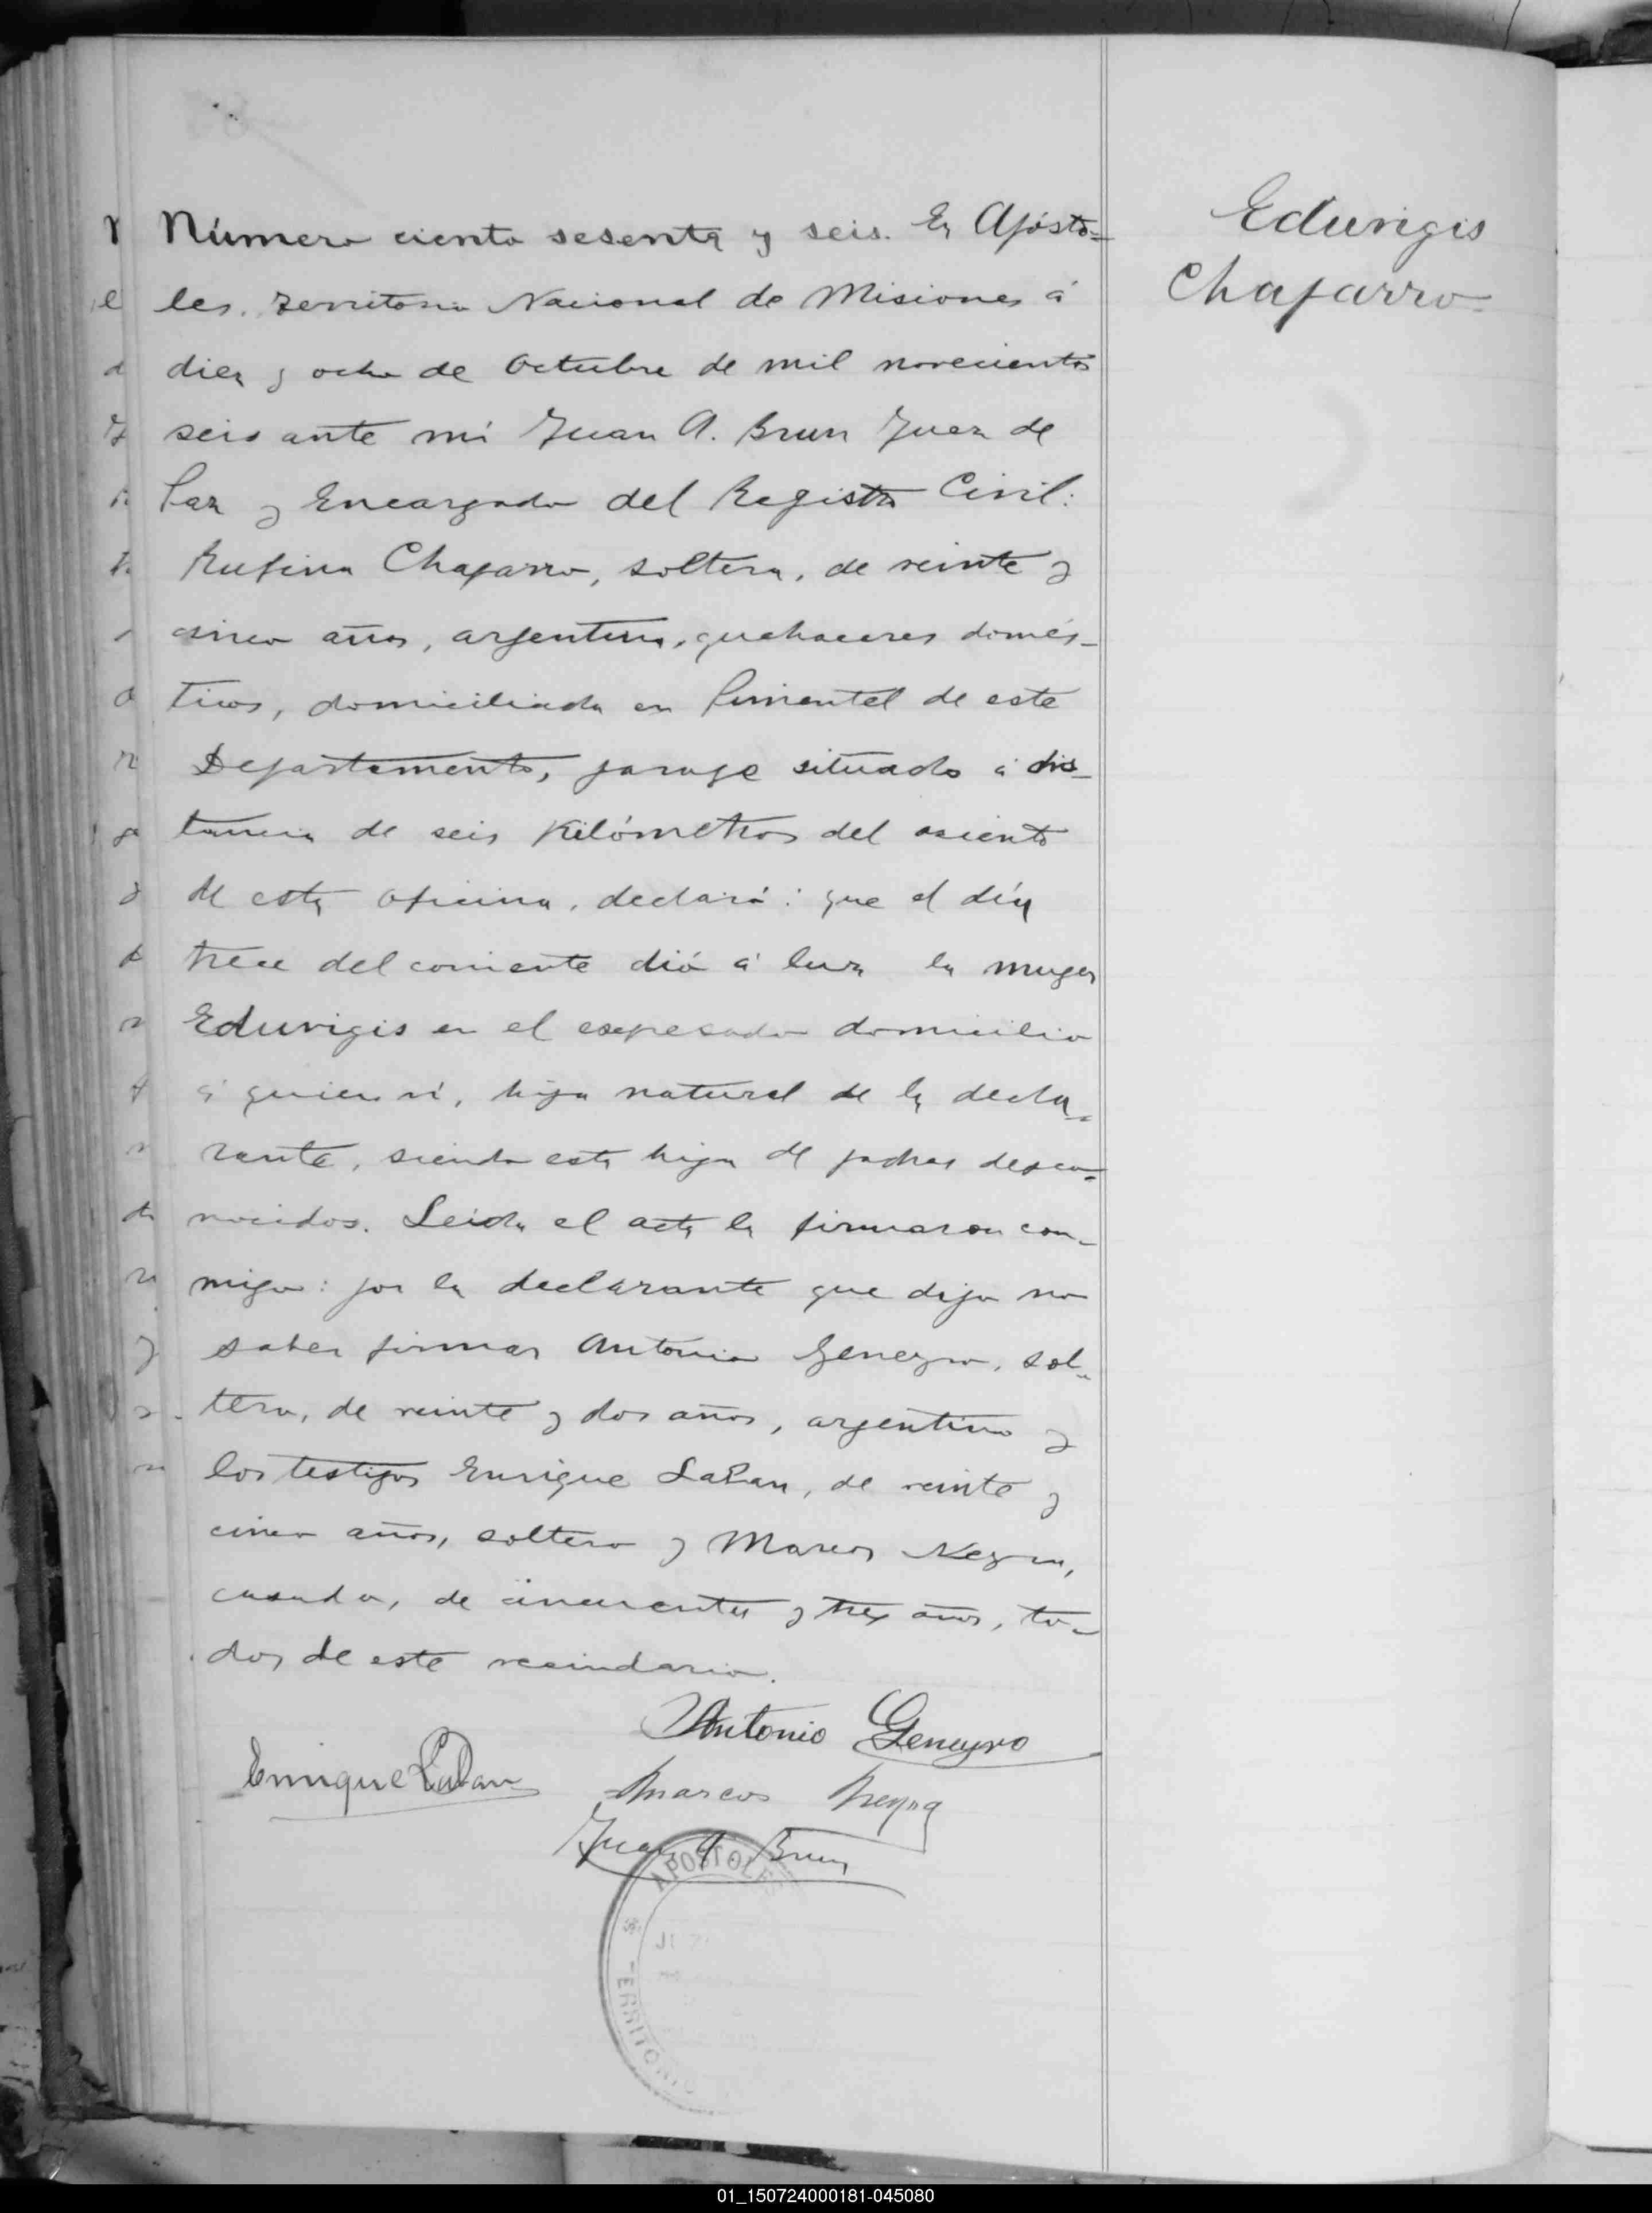 Número ciento sesenta y seis. En Apósto=
les, Territorio Nacional de Misiones á
diez y ocho de Octubre de mil novecientos
seis ante mí Juan A. Brun Juez de
Paz y Encargado del Registro Civil:
Rufina Chaparro, soltera, de veinte y
cinco años, argentina, quehaceres domés-
ticos, domiciliada en Pimentel de este
Departamento, parage situado á dis-
tancia de seis Kilómetros del asiento
de esta oficina, declaró: que el día
trece del corriente dió á luz la muger
Eduvigis en el expresado domicilio
á quien ví, hija natural de la decla-
rante, siendo esta hija de padres desco=
nocidos. Leida el acta la firmaron con-
migo: por la declarante que dijo no
saber firmar Antonio Geneyro, sol-
tero, de veinte y dos años, argentino y
los testigos Enrique LaPan, de veinte y
cinco años, soltero y Marcos Neyra,
casado, de cincuenta y tres años, to-
dos de este vecindario.
Antonio Geneyro
Enrique LaPan
Marcos Neyra
Juan A Brun
APOSTOLES
TERRITORIO
Eduvigis
Chaparro
01_150724000181-045080